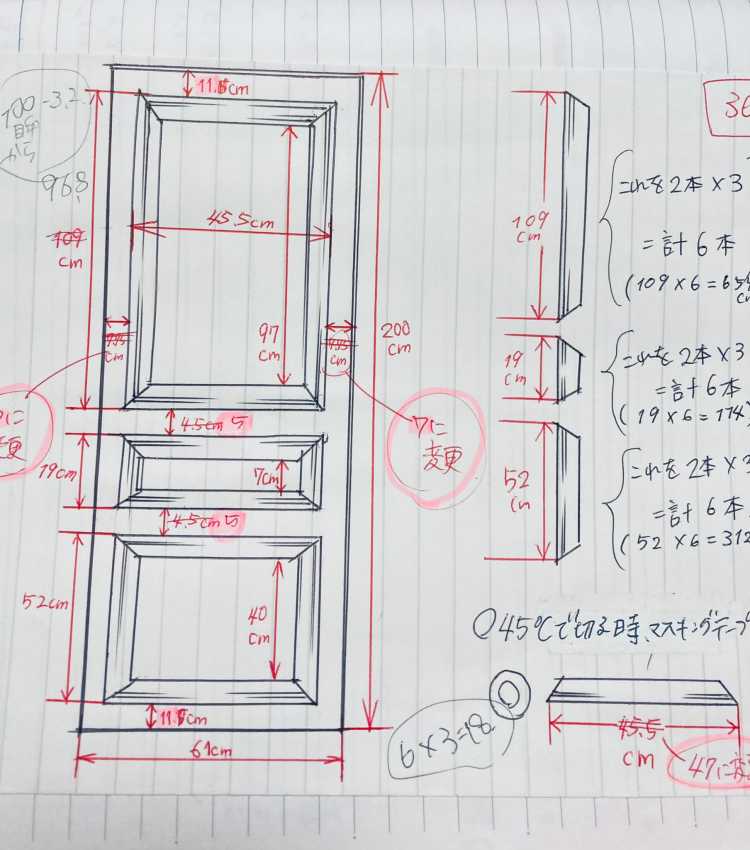 11.5cm
100-3.2
目串
から
96.8
109
cm
45.5cm
97
cm
200
cm
cm
cm
変更
7に
変更
4.5cm 5
19cm
7cm
4.5cm 5
52cm
40
cm
cm
61cm
36
109
cm
これを2本×3
=計6本
(109×6=654
cm
19
cm
これを2本×3
=計6本
(19×6=114)
52
cm
これを2本×3
=計6本
(52×6=312
○45℃で切る時、マスキングテープ
6×3=18
45.5
cm
47に変